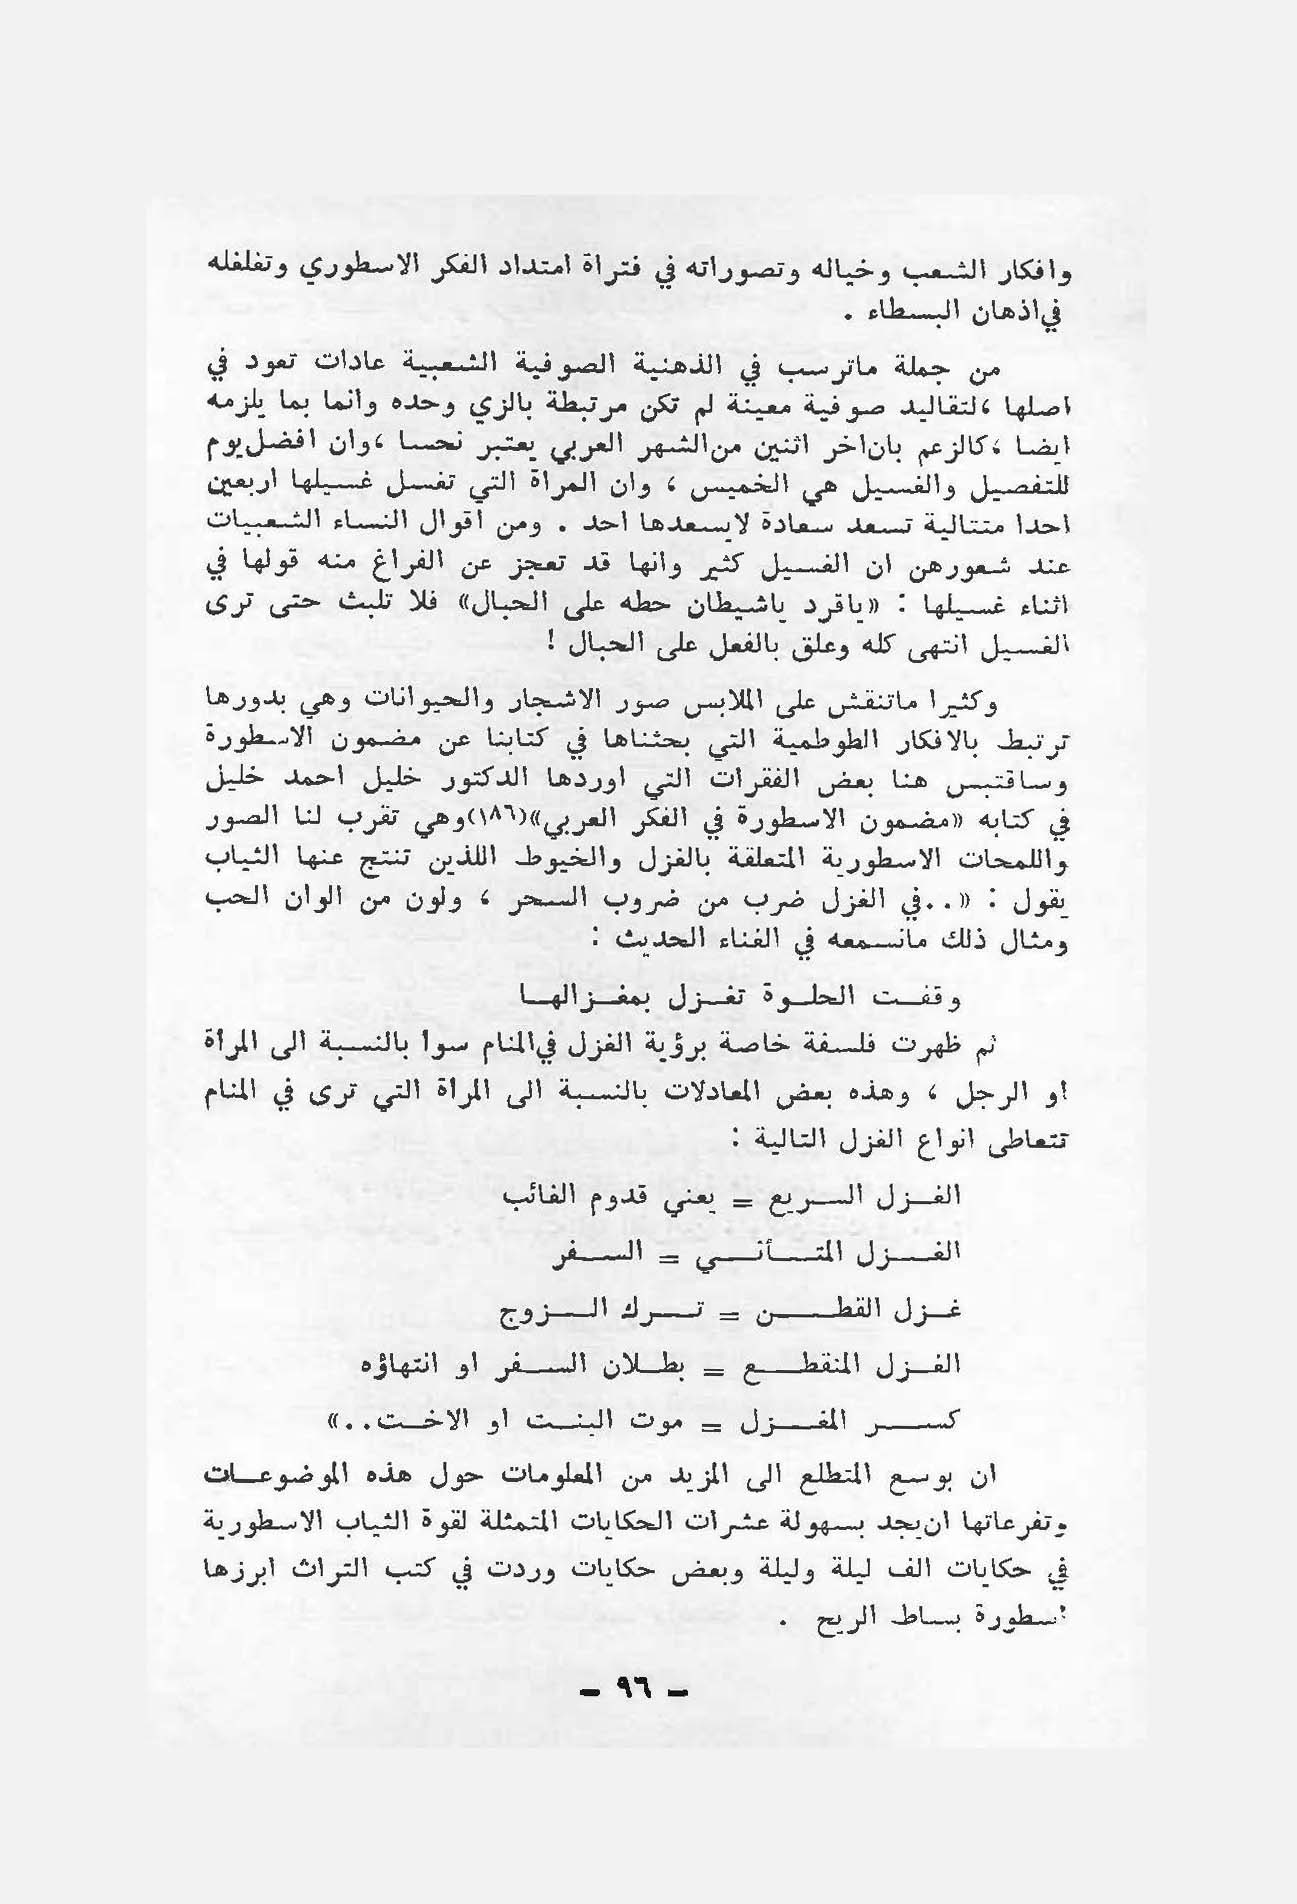 وافكار الشعب وخياله وتصوراته في فتراة امتداد الفكر الاسطوري وتغلغله
في اذهان البسطاء .
من جملة ماترسب في الذهنية الصوفية الشعبية عادات تعود في
اصلها ، لتقاليد صوفية معينة لم تكن مرتبطة بالزي وحده وانما بما يلزمه
ايضا ، كالزعم بان اخر اثنين من الشهر العربي يعتبر نحسا ، وان افضل يوم
للتفصيل والغسيل هي الخميس ، وان المراة التي تغسل غسيلها اربعين
احدا متتالية تسعد سعادة لايسعدها احد . ومن اقوال النساء الشعبيات
عند شعورهن ان الغسيل كثير وانها قد تعجز عن الفراغ منه قولها في
اثناء غسيلها : «ياقرد ياشيطان حطه على الحبال» فلا تلبث حتى ترى
الغسيل انتهى كله وعلق بالفعل على الحبال !
وكثيرا ماتنقش على الملابس صور الاشجار والحيوانات وهي بدورها
ترتبط بالافكار الطوطمية التي بحثناها في كتابنا عن مضمون الاسطورة
وساقتبس هنا بعض الفقرات التي اوردها الدكتور خليل احمد خليل
في كتابه «مضمون الاسطورة في الفكر العربي»(١٨٦)وهي تقرب لنا الصور
واللمحات الاسطورية المتعلقة بالغزل والخيوط اللذين تنتج عنها الثياب
يقول : «..في الغزل ضرب من ضروب السحر ، ولون من الوان الحب
ومثال ذلك مانسمعه في الغناء الحديث :
وقفت الحلوة تغزل بمغزالها
ثم ظهرت فلسفة خاصة برؤية الغزل في المنام سوأ بالنسبة الى المرأة
او الرجل ، وهذه بعض المعادلات بالنسبة الى المرأة التي ترى في المنام
تتعاطى انواع الغزل التالية :
الغزل السريع = يعني قدوم الغائب
الغزل المتأني = السفر
غزل القطن = ترك الزوج
الغزل المنقطع = بطلان السفر او انتهاؤه
كسر المغزل = موت البنت او الاخت..»
ان بوسع المتطلع الى المزيد من المعلومات حول هذه الموضوعات
وتفرعاتها ان يجد بسهولة عشرات الحكايات المتمثلة لقوة الثياب الاسطورية
في حكايات الف ليلة وليلة وبعض حكايات وردت في كتب التراث ابرزها
اسطورة بساط الريح .
- ٩٦ -